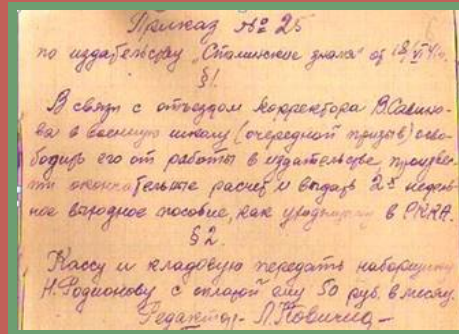 Приказ № 25
по издательству „Сталинское знамя" от 18/VI 41г.
§1.
В связи с отъездом корректора В.Салико-
ва в военную школу (очередной призыв) осво-
бодить его от работы в издательстве, произве-
сти окончательные расчеты и выдать 2х недель-
ное выходное пособие, как уходящему в РККА.
§2.
Кассу и кладовую передать наборщику
Н.Родионову с оплатой ему 50 руб. в месяц.
Редактор - Л.